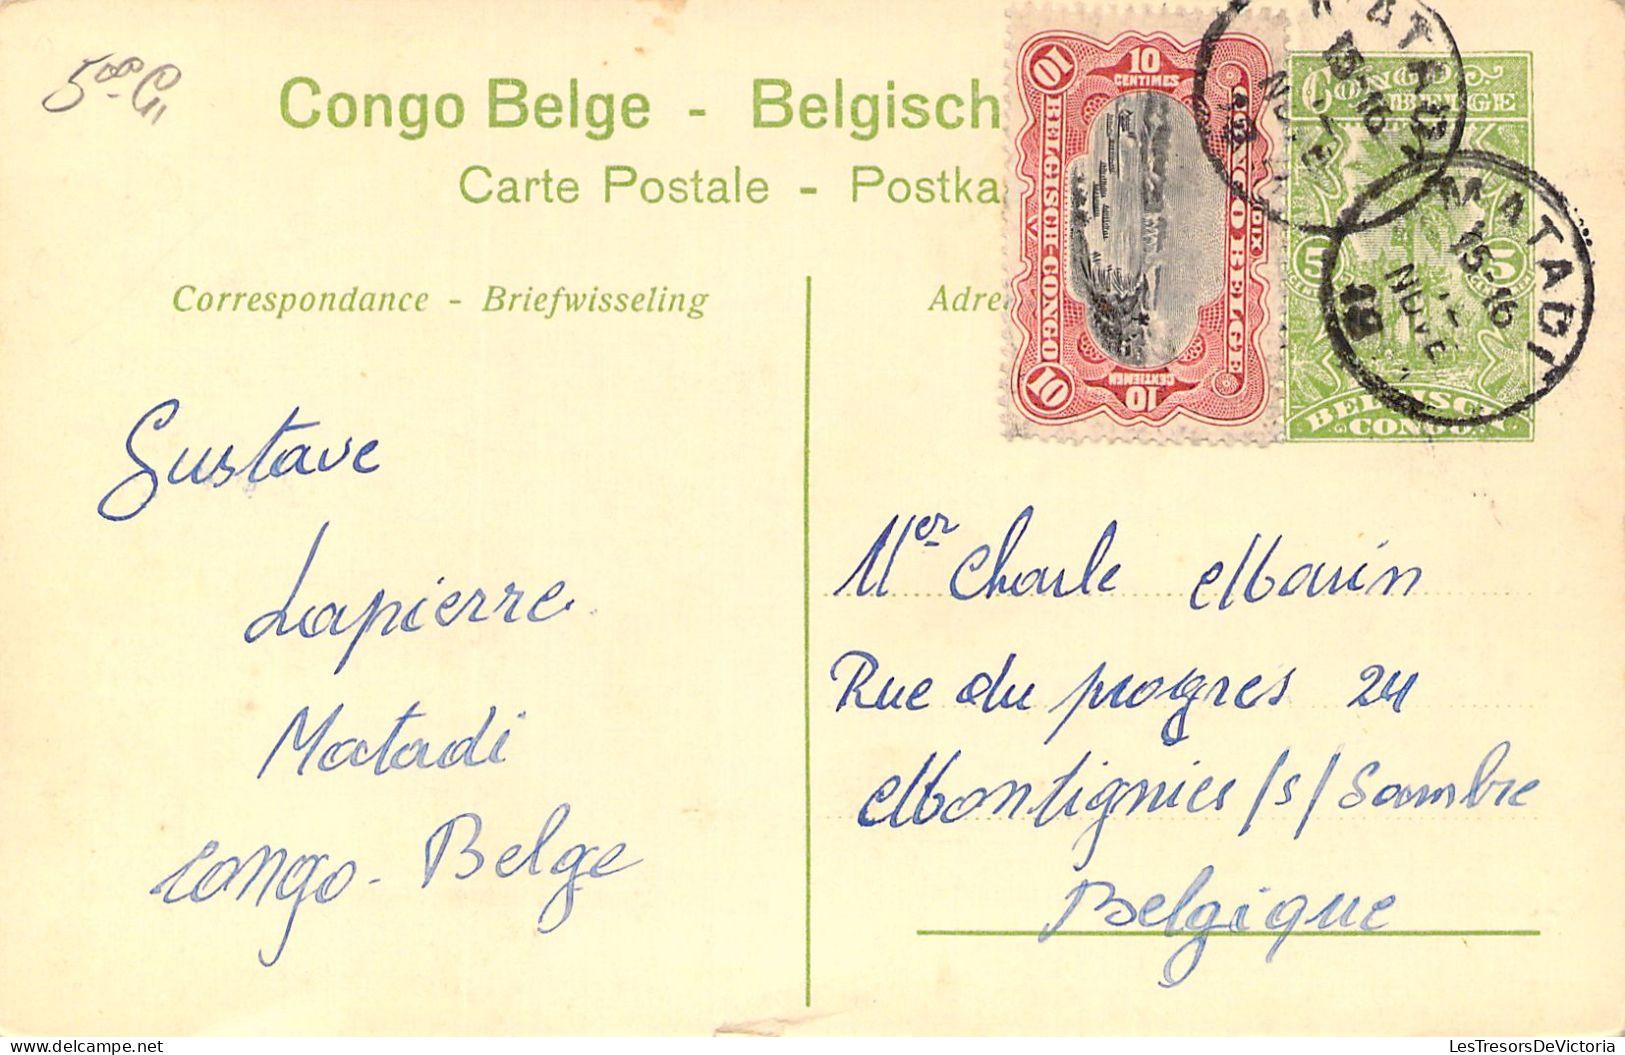 Congo Belge - Belgisch
Carte Postale - Postka
Correspondance - Briefwisseling
Adre
10 CENTIMES
CONGO BELGE
DIX
BELGISCH-CONGO
10 CENTIEMEN
10
10
CONGO BELGE
5
5
BELGISCH CONGO
MATADI
15-16
NOVE
19
MATADI
15-16
NOVE
19
Gustave
Lapierre
Matadi
Congo-Belge
Mer Charle Marin
Rue du progres 24
Montignies /s/ Sambre
Belgique
LesTresorsDeVictoria
LesTresorsDeVictoria.com